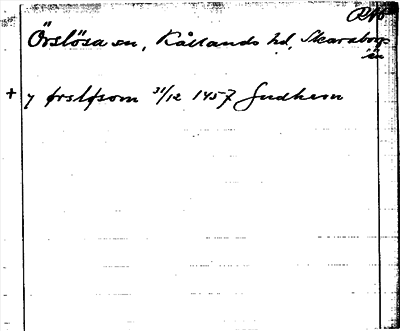 Örslösa sn, Kållands hd, Skaraborgs
län
+ y ørsløsom 31/12 1457 Gudhem